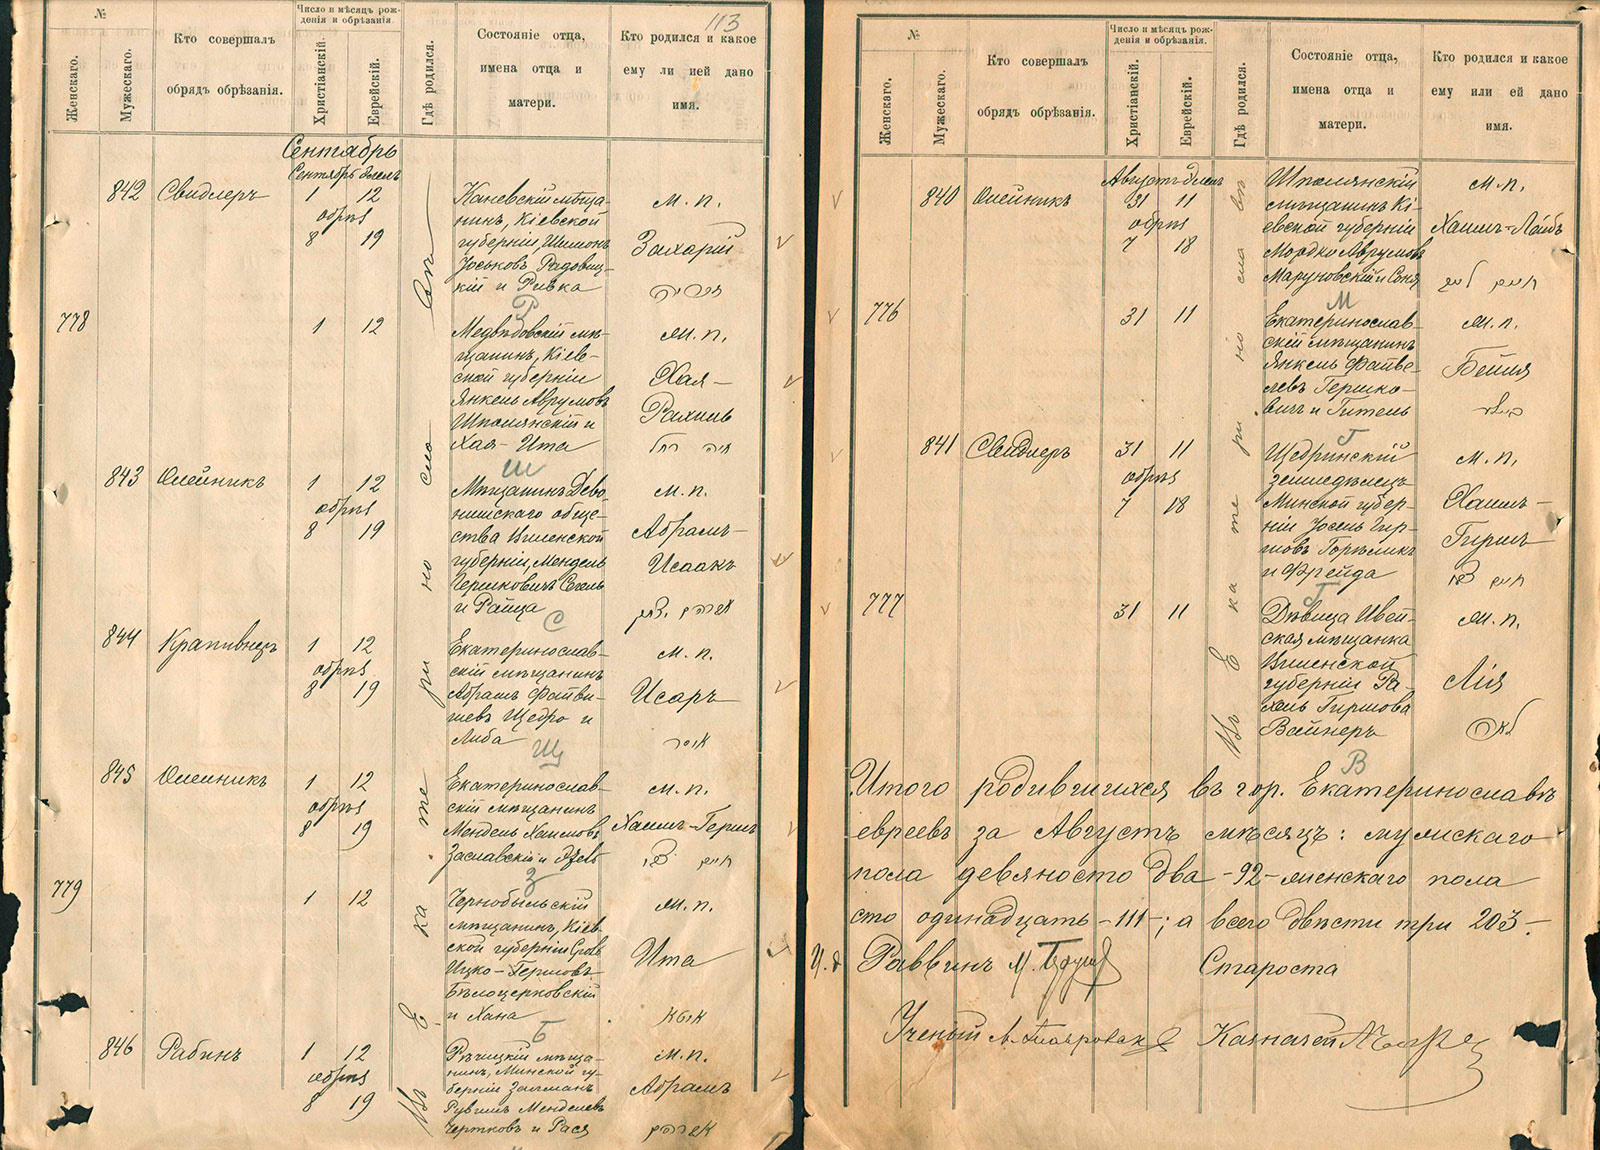 113
№
Женскаго.
Мужескаго.
Кто совершалъ
обрядъ обрѣзанія.
Число и мѣсяцъ рож-
денія и обрѣзанія.
Христіанскій.
Еврейскій.
Гдѣ родился.
Состояніе отца,
имена отца и
матери.
Кто родился и какое
ему ли ией дано
имя.
Сентябрь
Сентябрь
842 Свидлеръ
1 12
обрѣз
8 19
Каневскій мѣща-
нинъ, Кіевской
губерніи, Шимонъ
Іоськовъ Радовиц-
кій и Ривка
м. п.
Захарій
Р
778
1 12
Медвѣдовскій мѣ-
щанинъ, Кіев-
ской губерніи
Янкель Аврумовъ
Шполянскій и
Хая-Ита
ж. п.
Хая-
Рахиль
חיה רחל
Ш
843 Олейникъ
1 12
обрѣз
8 19
Мѣщанинъ Дево-
нишскаго обще-
ства Виленской
губерніи, Мендель
Гершковичъ Сегель
и Райца
м. п.
Абрамъ-
Исаакъ
אברהם יצחק
С
844 Крапивнеръ
1 12
обрѣз
8 19
Екатеринослав-
скій мѣщанинъ
Абрамъ Файви-
шевъ Щедро и
Либа
м. п.
Исаръ
איסר
Щ
845 Олейникъ
1 12
обрѣз
8 19
Екатеринослав-
скій мѣщанинъ
Мендель Хаимовъ
Заславскій и
м. п.
Хаимъ-Гершъ
חיים הירש
З
779
1 12
Чернобыльскій
мѣщанинъ, Кіев-
ской губерніи Сроль
Ицко-Гершовъ
Бѣлоцерковскій
и Хана
ж. п.
Ита
איטא
Б
846 Рабинъ
1 12
обрѣз
8 19
Рѣчицкій мѣща-
нинъ, Минской гу-
берніи Залманъ
Рувимъ Менделевъ
Чертковъ и Рася
м. п.
Абрамъ
אברהם
Въ Екатеринославѣ
№
Женскаго.
Мужескаго.
Кто совершалъ
обрядъ обрѣзанія.
Число и мѣсяцъ рож-
денія и обрѣзанія.
Христіанскій.
Еврейскій.
Гдѣ родился.
Состояніе отца,
имена отца и
матери.
Кто родился и какое
ему или ей дано
имя.
Августъ
840 Олейникъ
31 11
обрѣз
7 18
Шполянскій
мѣщанинъ Кі-
евской губерніи
Мордко Аврумовъ
Маруновскій и Соня
м. п.
Хаимъ-Лейбъ
חיים לייב
М
776
31 11
Екатеринослав-
скій мѣщанинъ
Янкель Файве-
левъ Гершко-
вичъ и Гитель
ж. п.
Бейля
ביילע
Г
841 Свидлеръ
31 11
обрѣз
7 18
Щедринскій
земледѣлецъ
Минской губер-
ніи Іосель Гир-
шовъ Горѣликъ
и Фрейда
м. п.
Хаимъ-
Гиршъ
חיים הירש
Г
777
31 11
Дѣвица Ивей-
ская мѣщанка
Виленской
губерніи Ра-
хель Гиршова
Вайнеръ
ж. п.
Лія
לאה
В
Въ Екатеринославѣ
Итого родившихся въ гор. Екатеринославѣ
евреевъ за Августъ мѣсяцъ: мужскаго
пола девяносто два -92- женскаго пола
сто одинадцать -111-; а всего двѣсти три 203.-
И. д. Раввинъ Староста
Ученый Казначей